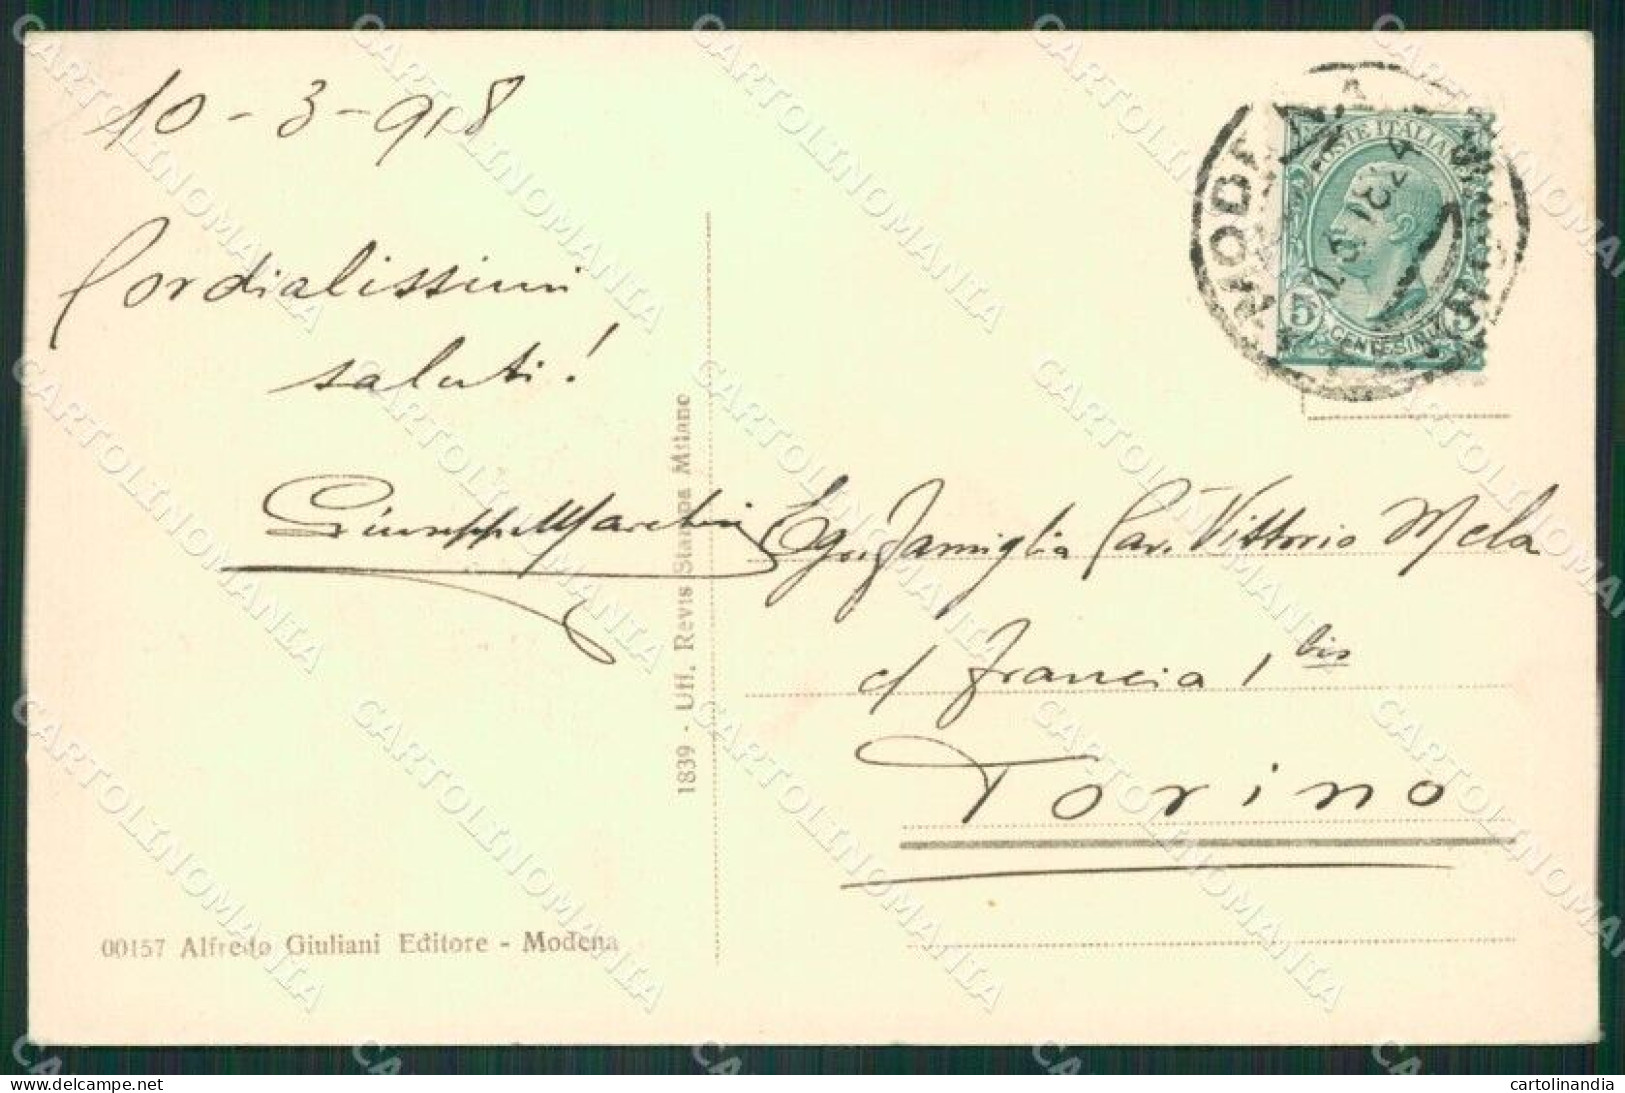 10-3-918
Cordialissimi
saluti!
Giuseppe Marchini
1839 - Uff. Revis Stampa Milano
00157 Alfredo Giuliani Editore - Modena
MODENA
POSTE ITALIANE
5 CENTESIMI 5
Egr. Famiglia Cav. Vittorio Mela
c/ Francia 1 bis
Torino
CARTOLINOMANIA
cartolinomania.com
cartolinandia